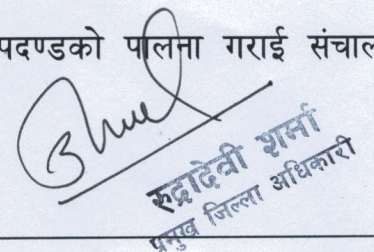 पदण्डको पालना गराई संचाल
रुद्रादेवी शर्मा
प्रमुख जिल्ला अधिकारी